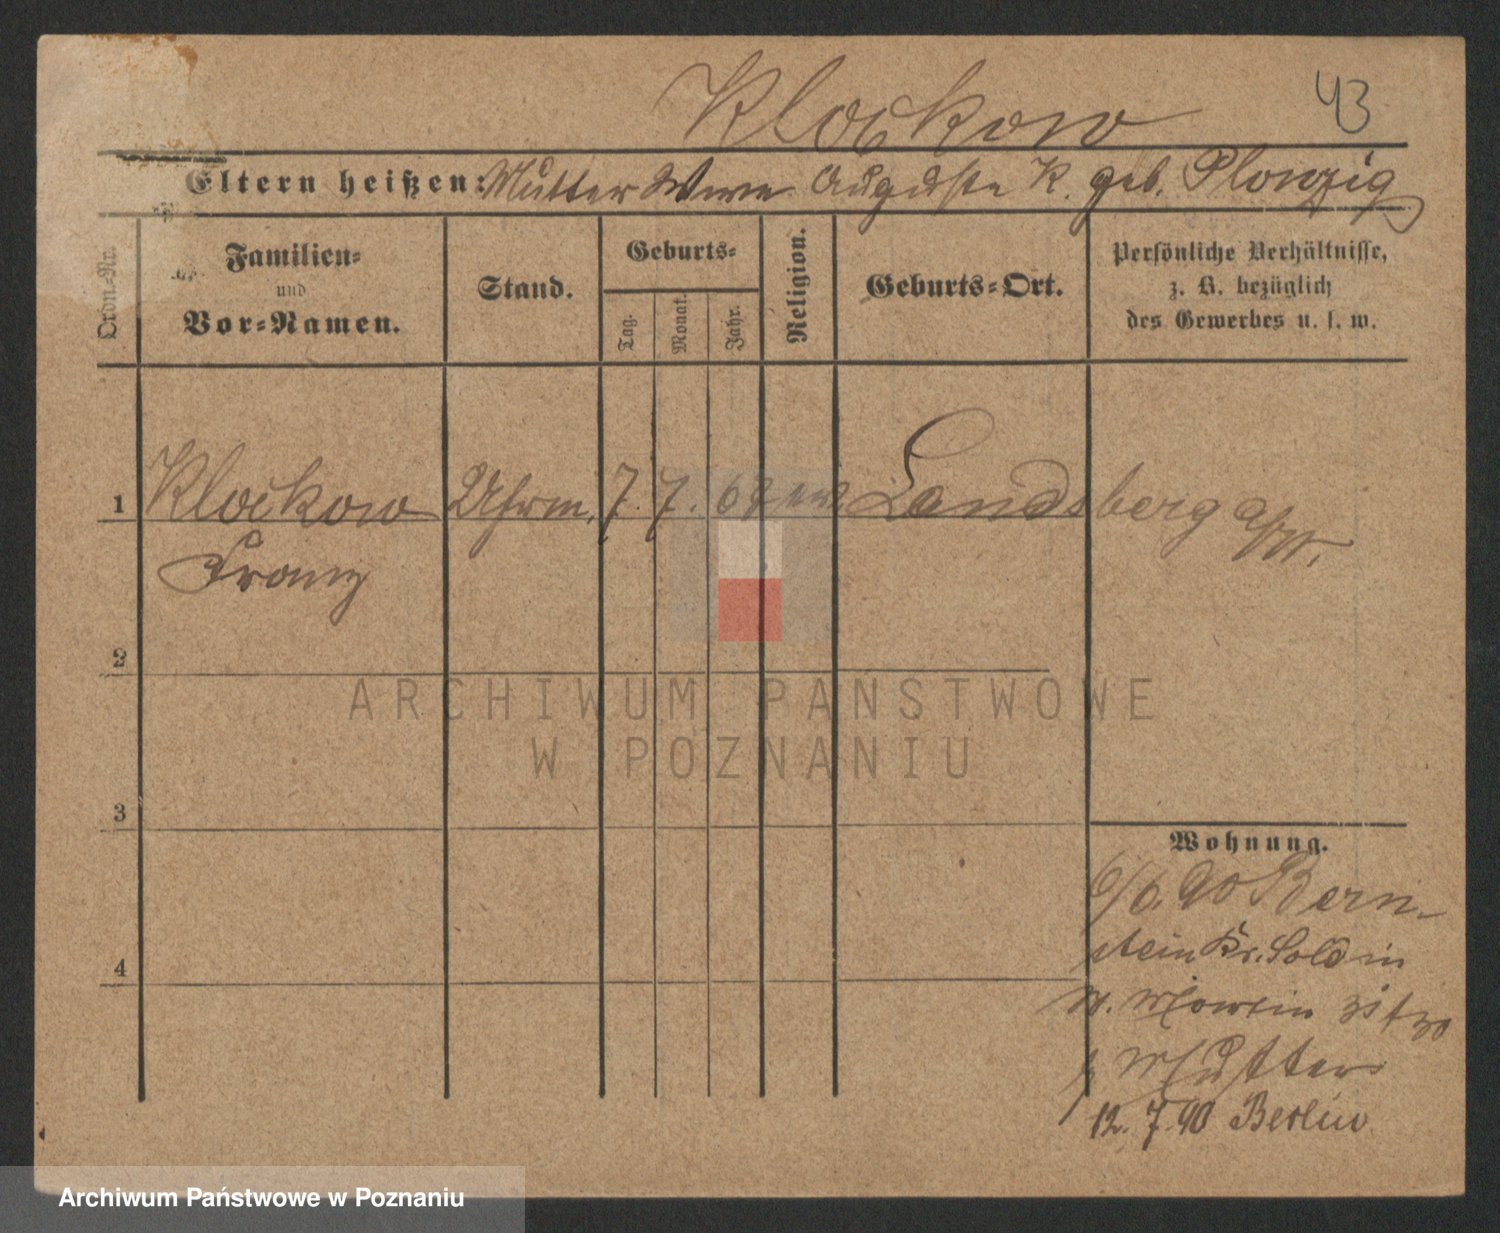 Klockow
43
Eltern heißen: Mutter Wwe Auguste K. geb. Plonzig
Ordn.-Nr.
Familien-
und
Vor-Namen.
Stand.
Geburts-
Tag.
Monat.
Jahr.
Religion.
Geburts-Ort.
Persönliche Verhältnisse,
z. B. bezüglich
des Gewerbes u. s. w.
1 Klockow Uhrm. 7. 7. ew Landsberg a/W.
Franz
2
3
4
Wohnung.
6/6. 90 Bern-
stein Kr. Soldin
St. Martin
Mutter
12. 7. 90 Berlin
ARCHIWUM PAŃSTWOWE
W POZNANIU
Archiwum Państwowe w Poznaniu